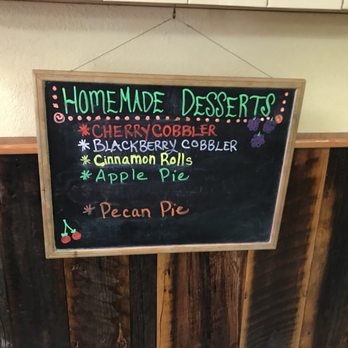 HOMEMADE DESSERTS
* CHERRY COBBLER
* BLACKBERRY COBBLER
* Cinnamon Rolls
* Apple Pie
* Pecan Pie